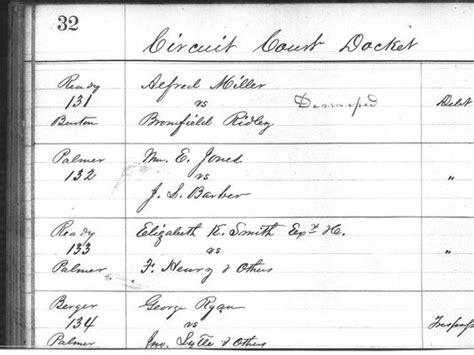 32
Circuit Court Docket
Ready Alfred Miller
131 vs Debt
Burton Bromfield Ridley
Palmer Wm. E. Jones
132 vs "
J. S. Barber
Ready Elizabeth K. Smith Exr &c.
133 vs "
Palmer F. Henry & Others
Berger George Ryan
134 vs Trespass
Palmer Jno. Lytle & Others